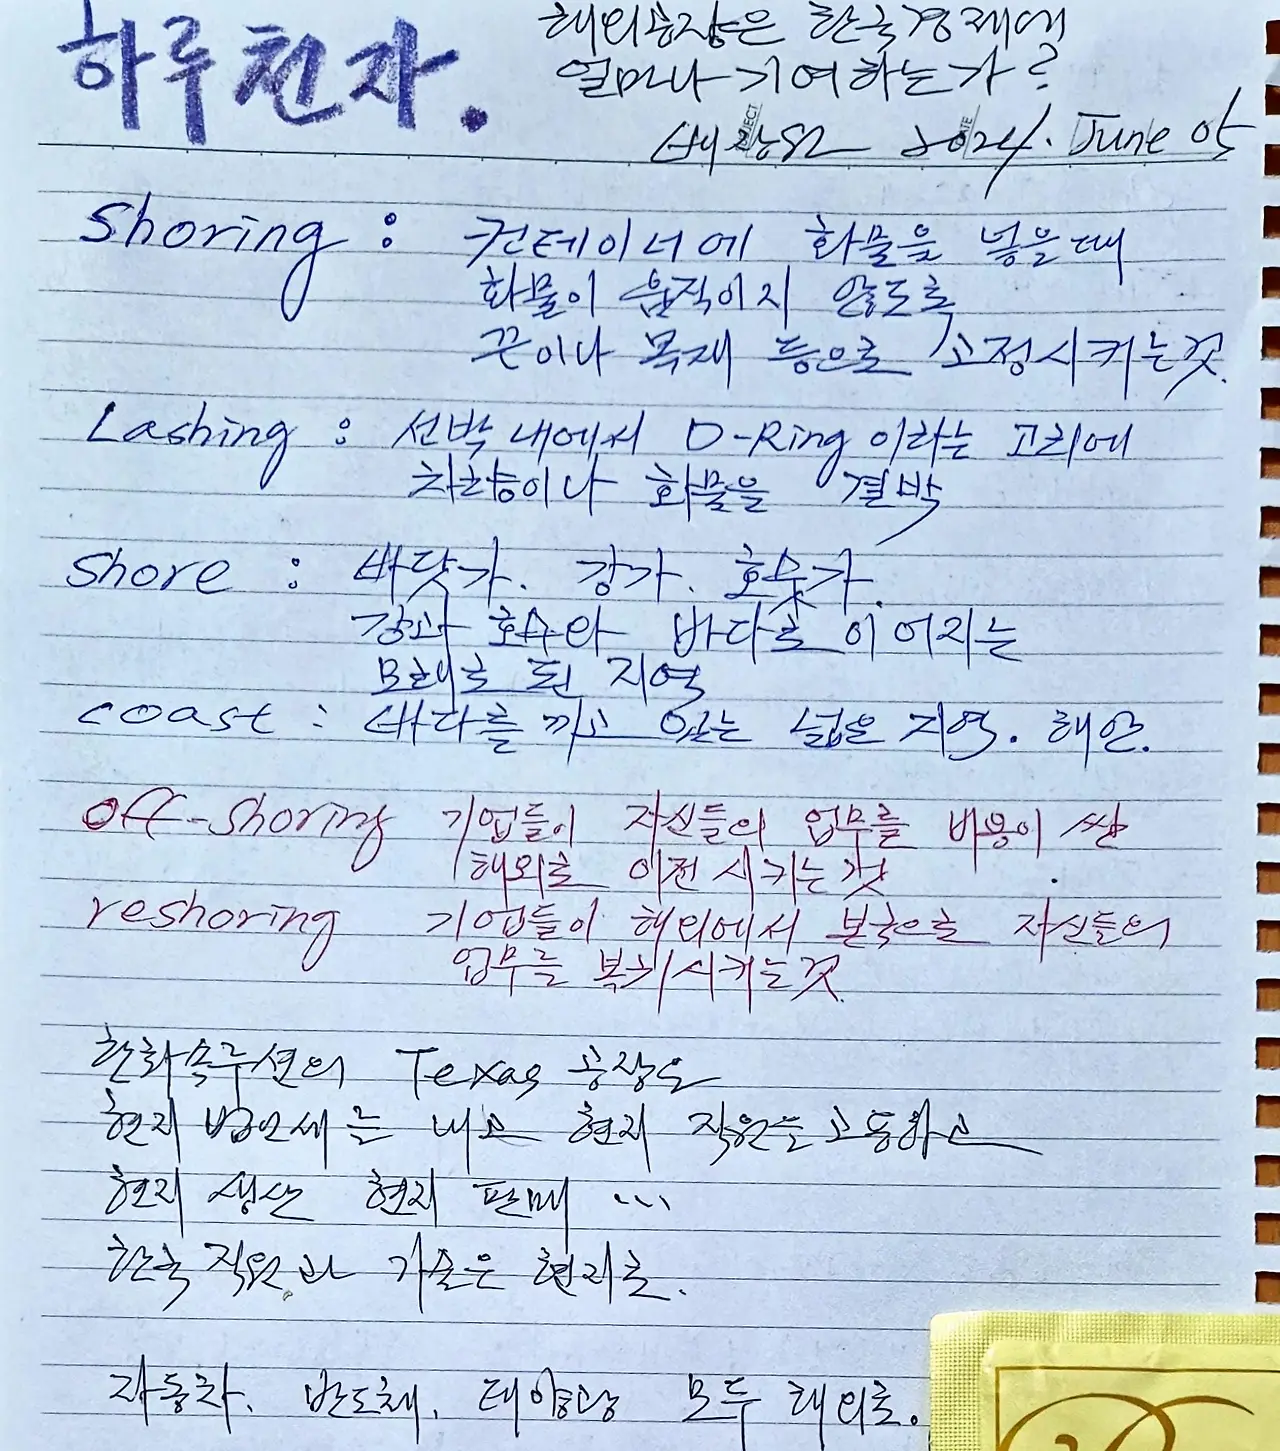 하루천자.
해외공장은 한국경제에
얼마나 기여하는가?
2024. June 05
Shoring : 컨테이너에 화물을 넣을때
화물이 움직이지 않도록
끈이나 목재 등으로 고정시키는것.
Lashing : 선박 내에서 D-Ring 이라는 고리에
차량이나 화물을 결박
Shore : 바닷가. 강가. 호숫가.
강과 호수와 바다로 이어지는
모래로 된 지역
coast : 바다를 끼고 있는 넓은 지역. 해안.
off-shoring 기업들이 자신들의 업무를 비용이 싼
해외로 이전 시키는것.
reshoring 기업들이 해외에서 본국으로 자신들의
업무를 복귀시키는것.
한화솔루션의 Texas 공장은
현지 법인세를 내고 현지 직원을 고용하고
현지 생산 현지 판매 ...
한국 직원과 기술은 현지로.
자동차. 반도체. 태양광 모두 해외로.